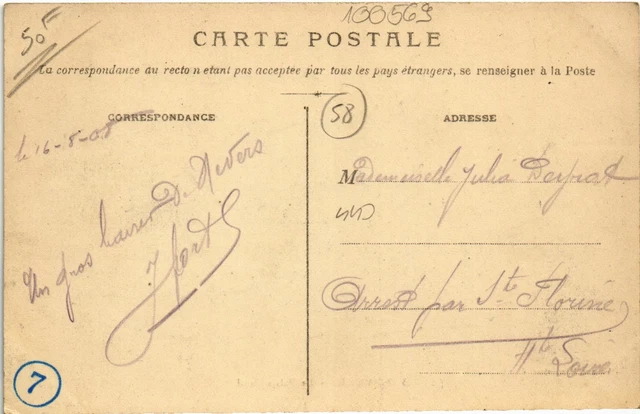 50F
100569
CARTE POSTALE
La correspondance au recto n'etant pas acceptée par tous les pays étrangers, se renseigner à la Poste
CORRESPONDANCE
le 16-8-08
Un gros baiser De Nevers
58
ADRESSE
Mademoiselle Julia
par Ste Florine
Hte Loire
7